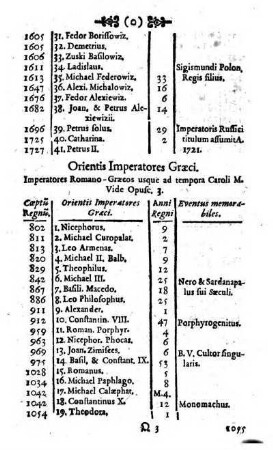 (o)
1605 31. Fedor Borissowiz.
1605 32. Demetrius,
1606 33. Zuski Basilowiz,
1611 34. Ladislaus, Sigismundi Polon.
1613 35. Michael Federowiz, 33 Regis filius.
1645 36. Alexi. Michalowiz, 16
1676 37. Fedor Alexiewiz. 6
1682 38. Joan, & Petrus Alexiewizii 14
1696 39. Petrus solus, 29 Imperatoris Russici
1725 40. Catharina. 2 titulum assumit A.
1727 41. Petrus II. 1721.
Orientis Imperatores Græci.
Imperatores Romano-Græcos usque ad tempora Caroli M.
Vide Opusc. 3.
Captū Regnū. Orientis Imperatores Græci. Anni Regni Eventus memorabiles.
802 1. Nicephorus, 9
811 2. Michael Curopalat, 2
813 3. Leo Armenas. 7
820 4. Michael II, Balb, 9
829 5. Theophilus, 12
842 6. Michael III. 25 Nero & Sardanapalus sui Sæculi.
867 7. Basili. Macedo, 18
886 8. Leo Philosophus, 25
911 9. Alexander, 1
912 10. Constantin. VIII. 47 Porphyrogenitus.
959 11. Roman. Porphyr. 4
963 12. Nicephor. Phocas, 6
969 13. Joan. Zimisces, 6 B. V. Cultor singularis.
975 14. Basil, & Constant. IX. 53
1028 15. Romanus. 5
1034 16. Michael Paphlago, 8
1042 17. Michael Calæphat, M.4.
1042 18. Constantinus X. 12 Monomachus.
1054 19. Theodora, 1
3 1055